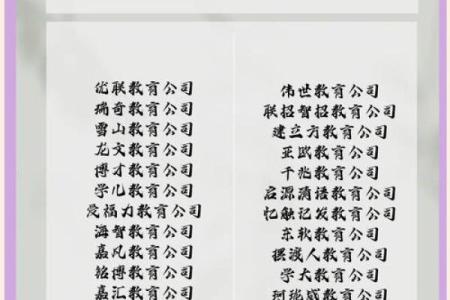 优联教育公司
瑞奇教育公司
雪山教育公司
龙文教育公司
博才教育公司
学儿教育公司
爱福力教育公司
海智教育公司
嘉凡教育公司
铭博教育公司
嘉汇教育公司
伟世教育公司
联招智招教育公司
建立方教育公司
亚欧教育公司
千兆教育公司
启源清话教育公司
忆触记发教育公司
东软教育公司
摆渡人教育公司
学大教育公司
珂珑威教育公司